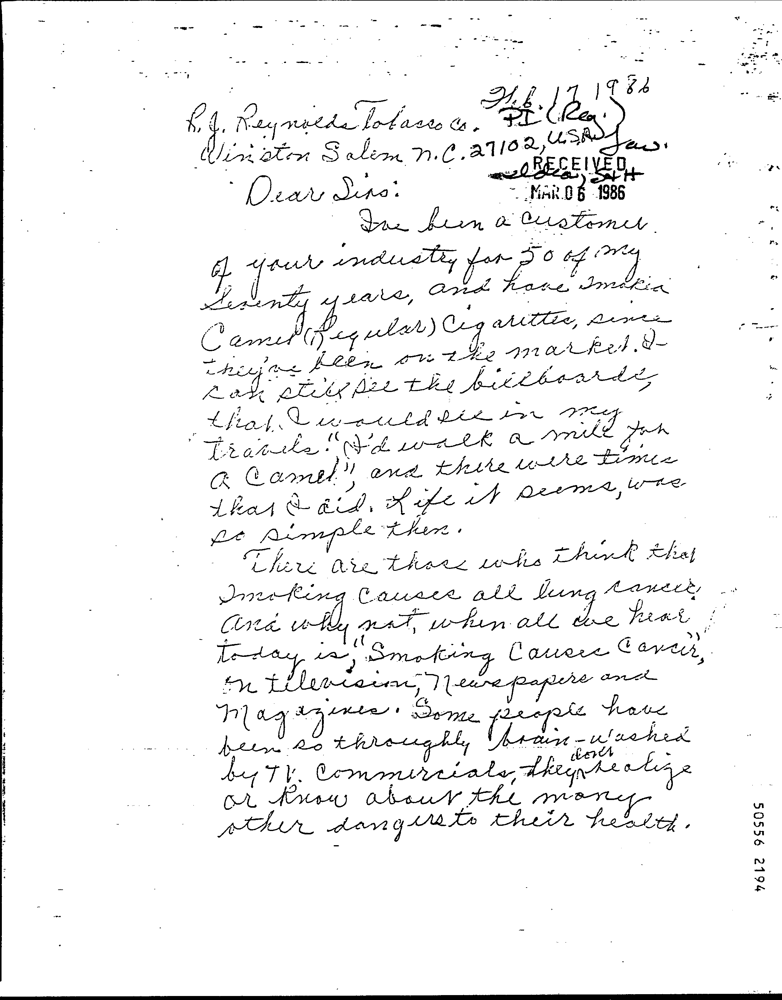 Feb. 17 1986
R.J. Reynolds Tobacco Co. PI (Reg.)
Winston Salem N.C. 27102, USA
RECEIVED
Dear Sirs:
MAR 06 1986
I've been a customer
of your industry for 50 of my
Seventy years, and have smoked
Camel (Regular) Cigarettes, since
they've been on the market. I
can still see the billboards,
that I would see in my
travels. "I'd walk a mile for
a Camel", and there were times
that I did. Life it seems, was
so simple then.
There are those who think that
Smoking Causes all lung cancer,
and why not, when all we hear
today is, "Smoking Causes Cancer",
on television, Newspapers and
Magazines. Some people have
been so throughly brain-washed
by TV. Commercials, they don't realize
or know about the many
other dangers to their health.
50556 2194